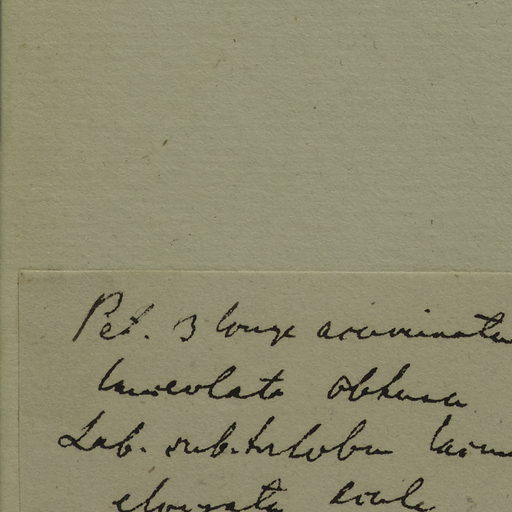 Pet. 3 longe acuminatu
lanceolata obtusa
Lab. sub. trilobum lacin
elongata acula